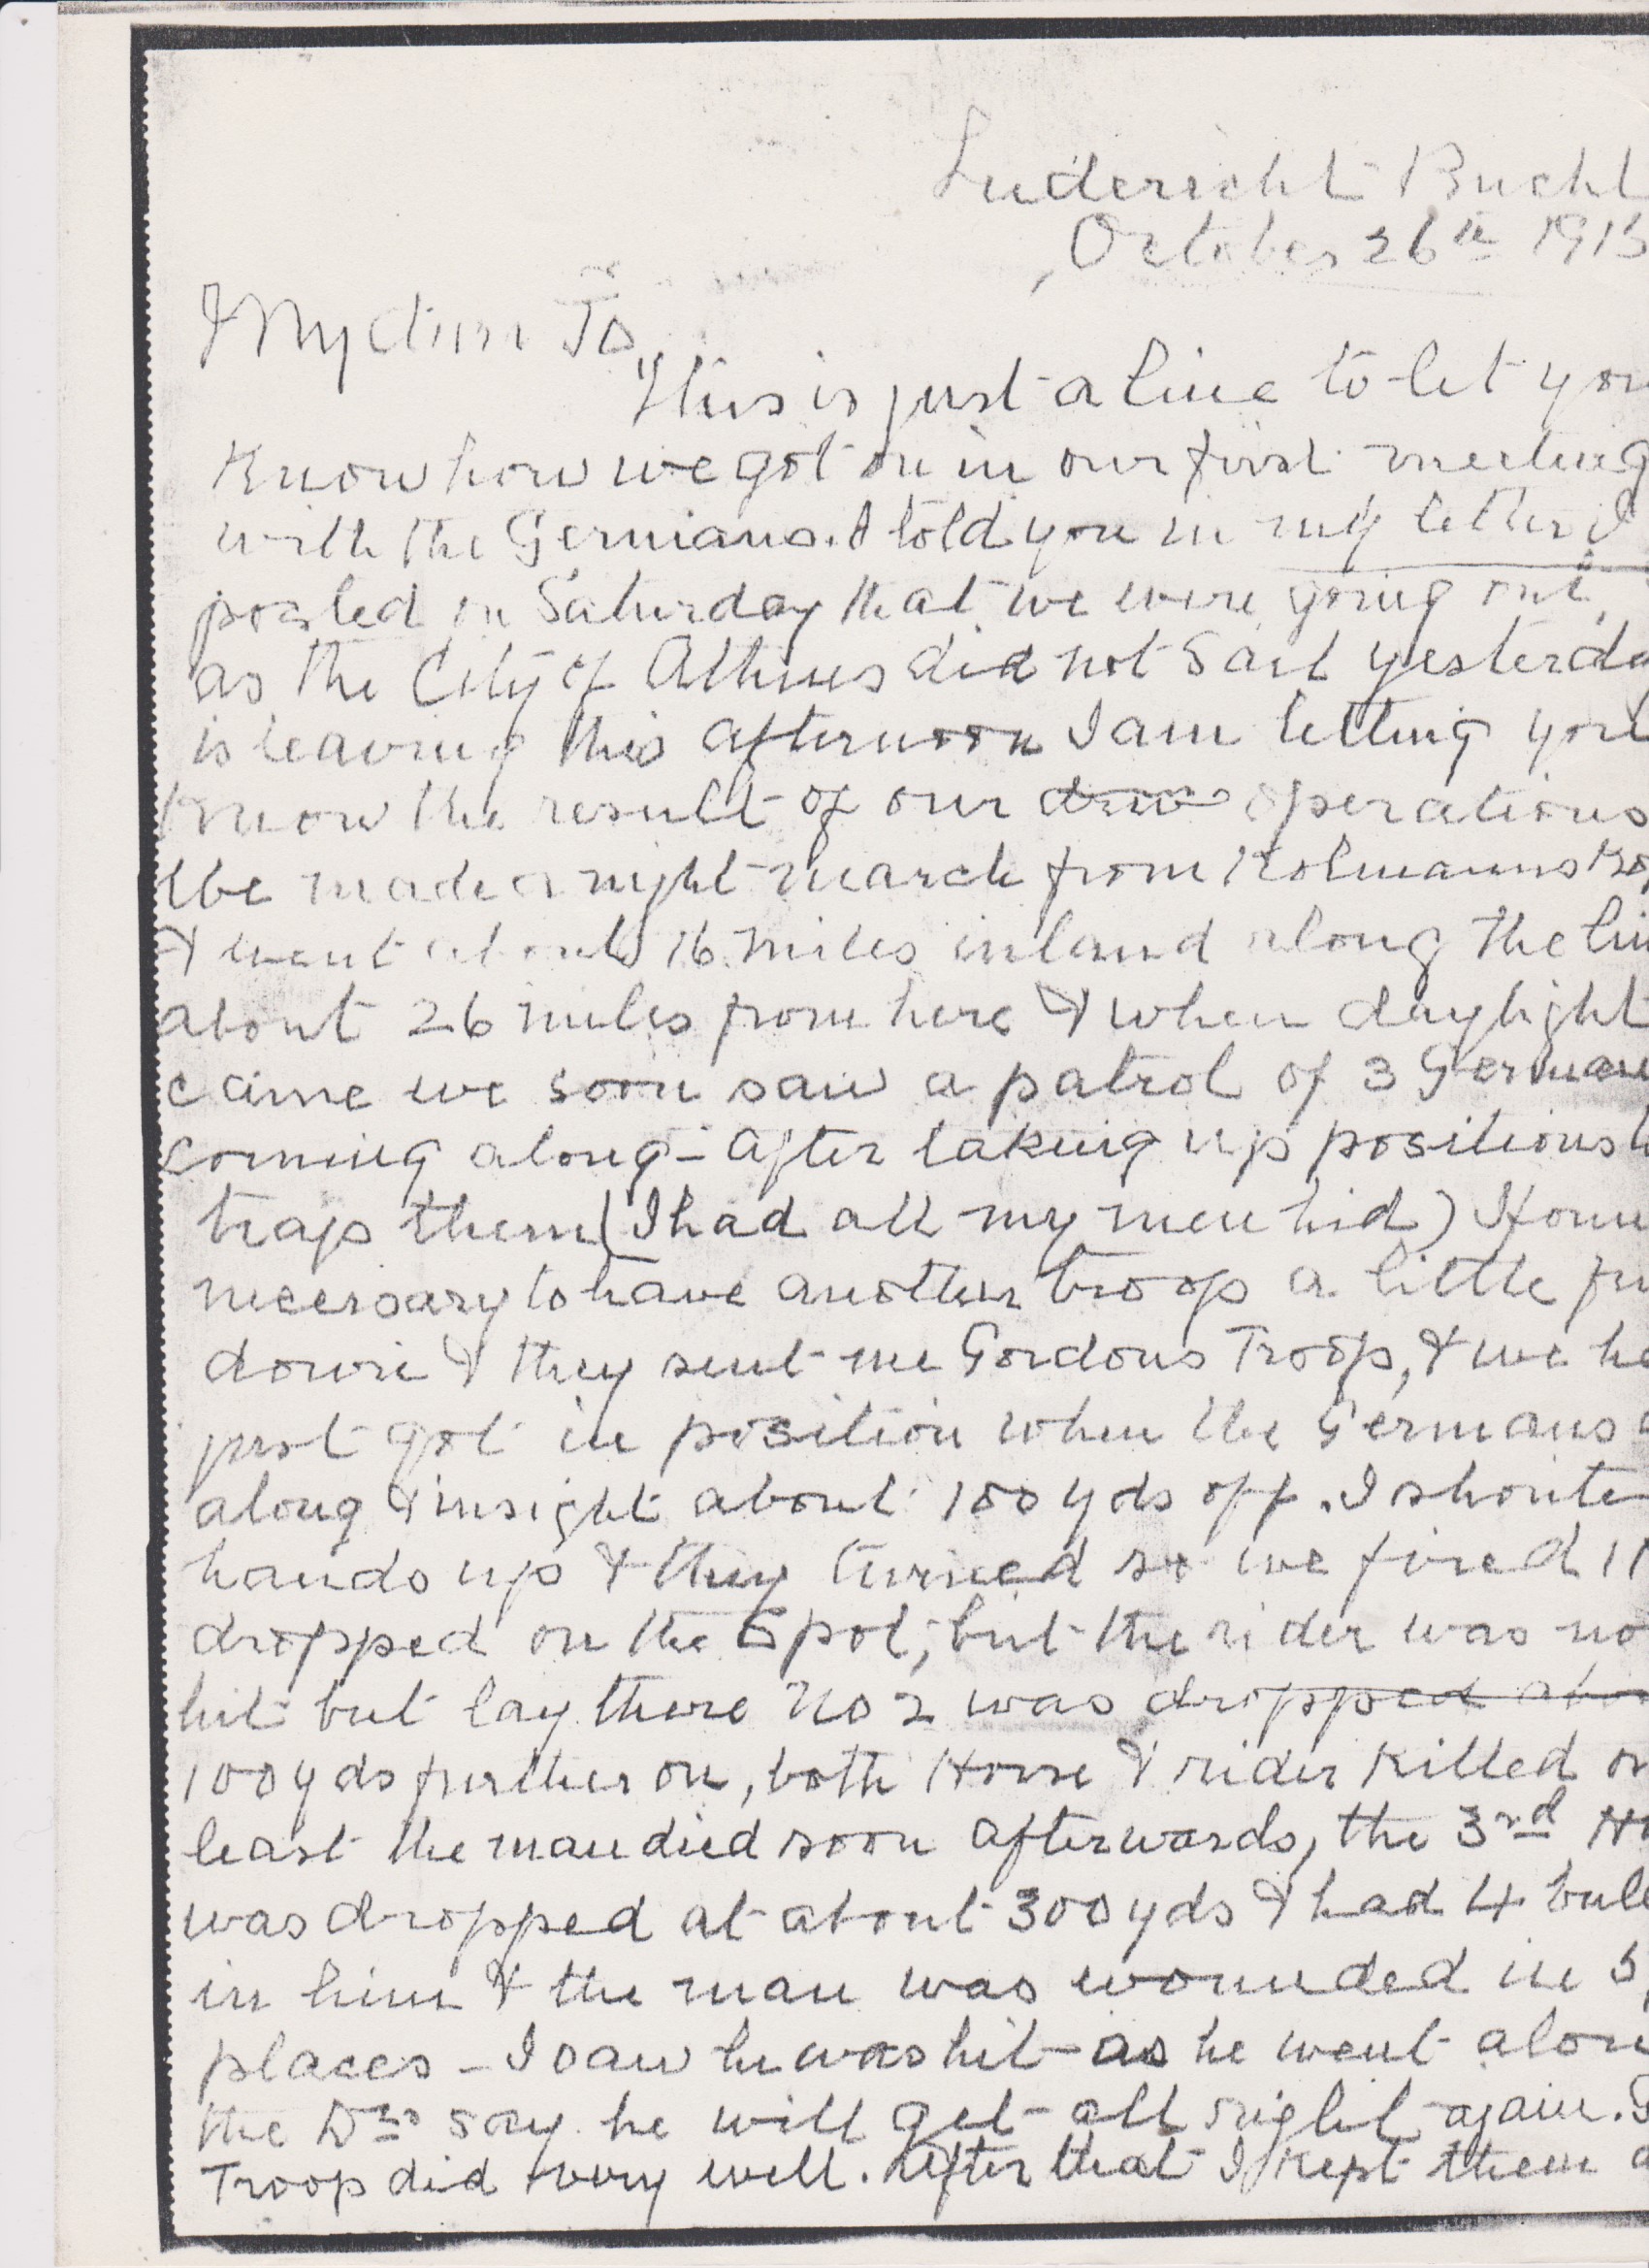 Luderischt Bucht
October 26th 1915
My dear Jo
This is just a line to let you
Know how we got on in our first meeting
with the Germans. I told you in my letter I
posted on Saturday that we were going out,
as the City of Athens did not Sail yesterda
is leaving this afternoon I am letting you
Know the result of our operations
We made a night march from Kolmanns Kop
& went about 16 miles inland along the lin
about 26 miles from here & when daylight
came we soon saw a patrol of 3 German
coming along - After taking up positions t
trap them (I had all my men hid) I foun
necessary to have another troop a little fu
down & they sent me Gordons Troop, & we ha
just got in position when the Germans
along & in sight about 100 yds off. I shoute
hands up & they turned so we fired
dropped on the Spot, but the rider was no
hit but lay there No 2 was dropped abou
100 yds further on, both Horse & rider Killed or
least the man died soon afterwards, the 3rd Ho
was dropped at about 300 yds & had 4 bull
in him & the man was wounded in 3
places - I saw he was hit as he went alon
the Drs say he will get all right again. G
Troop did very well. After that I Kept them a